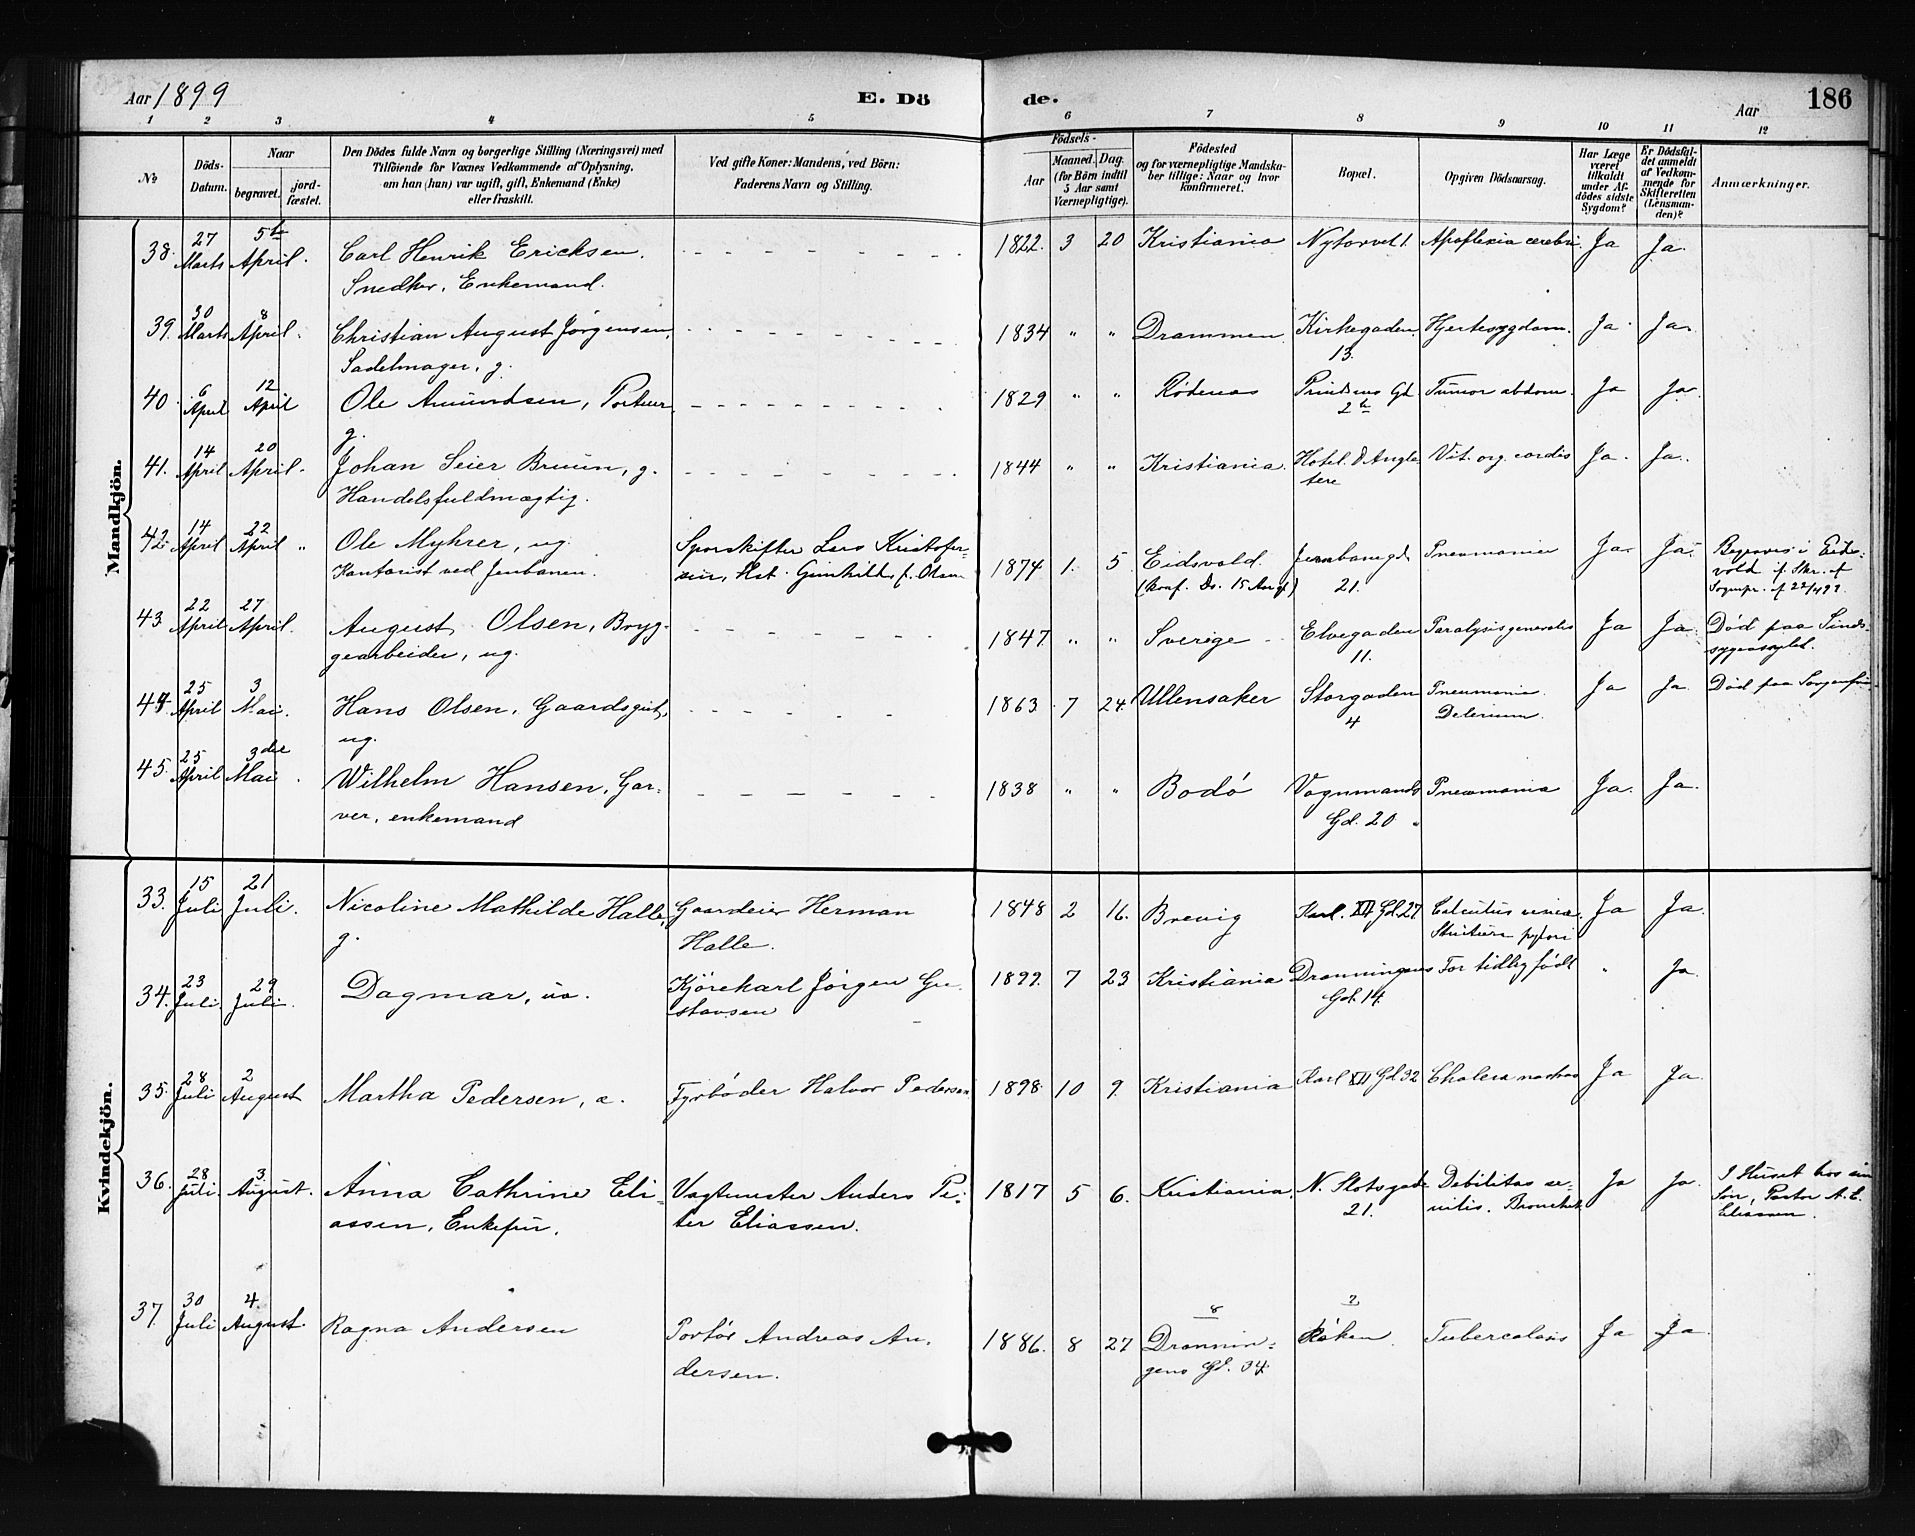 Aar 1899
E. Dö
de.
Aar
186
1 2 3 4 5 6 7 8 9 10 11 12
No
Döds-
Datum.
Naar
begravet.
jord-
fæstet.
Den Dödes fulde Navn og borgerlige Stilling (Næringsvei) med
Tilföiende for Voxnes Vedkommende af Oplysning,
om han (hun) var ugift, gift, Enkemand (Enke)
eller fraskilt.
Ved gifte Koner: Mandens, ved Börn:
Faderens Navn og Stilling.
Födsels-
Aar
Maaned. Dag.
(for Börn indtil
5 Aar samt
Værnepligtige).
Födested
og for værnepligtige Mandska-
ber tillige: Naar og hvor
konfirmeret.
Bopæl.
Opgiven Dödsaarsag.
Har Læge
været
tilkaldt
under Af-
dödes sidste
Sygdom?
Er Dödsfal-
det anmeldt
af Vedkom-
mende for
Skifteretten
(Lensman-
den)?
Anmærkninger.
Mandkjön.
38. 27 Marts 5te April. Carl Henrik Ericksen. 1822. 3 20 Kristiania Nytorvet 1. Apoplexia cerebri. Ja Ja.
Snedker, Enkemand.
39. 30 Marts 8 April. Christian August Jørgensen, 1834 " " Drammen Kirkegaden Hjertesygdom. Ja. Ja.
Sadelmager, g. 13.
40. 6 April 12 April Ole Amundsen, Portner 1829 " " Rødenes Prindsens Gd Tumor abdom. Ja Ja.
g. 2b
41. 14 April 20 April. Johan Seier Bruun, g. 1844 " " Kristiania. Hotel d'Angle- Vit. org. cordis Ja. Ja.
Handelsfuldmægtig. terre
42. 14 April 22 April " Ole Myhrer, ug. Sporskifter Lars Kristofer- 1874 1. 5. Eidsvold. Jernbanegd. Pneumonia Ja. Ja. Begraves i Eids-
Kontorist ved Jernbanen. sen, Hst. Gunhild f. Olsen (konf. Ds. 15 Aar gl) 21. vold if. Skr. af
Sognepr. af 22/4 99.
43. 22 April 27 April. August Olsen, Bryg- 1847. " " Sverige Elvegaden Paralysis generalis Ja Ja. Død paa Sinds-
gearbeider, ug. 11. sygeasylet.
44. 25 April 3 Mai. Hans Olsen, Gaardsgut, 1863. 7 24. Ullensaker Storgaden Pneumonia. Ja Ja. Død paa Sorgenfri
ug. 4 Delerium.
45. 25 April 3die Mai. Wilhelm Hansen, Gar- 1838 " " Bodó Vognmands Pneumonia Ja. Ja.
ver, enkemand Gd. 20.
Kvindekjön.
33. 15 Juli 21 Juli. Nicoline Mathilde Halle, Gaardeier Herman 1848 2 16. Brevig Karl XII Gd. 27. Calculus vesicæ. Ja Ja.
g. Halle. Strictura pylori
34. 23 Juli. 29 Juli. Dagmar, Kjørekarl Jörgen Gu- 1899. 7 23 Kristiania Dronningens For tidlig født " Ja.
stavsen Gd. 14.
35. 28 Juli 2 August Martha Pedersen, Fyrbøder Halvor Pedersen 1898. 10 9. Kristiania Karl XII Gd 32 Cholera nostras Ja Ja.
36. 28 Juli. 3. August. Anna Cathrine Eli- Vagtmester Anders Pe- 1817 5 6. Kristiania. N. Slotsgad Debilitas se- Ja Ja. I Huset hos sin
assen, Enkefru, ter Eliassen. 21. nilis. Bronchit. Søn, Pastor A. E.
Eliassen.
37. 30 Juli 4. August. Ragna Andersen Portør Andreas An- 1886. 8 27 8 Dronnin- ? Røken. Tuberculosis Ja Ja.
dersen. gens Gd. 34.